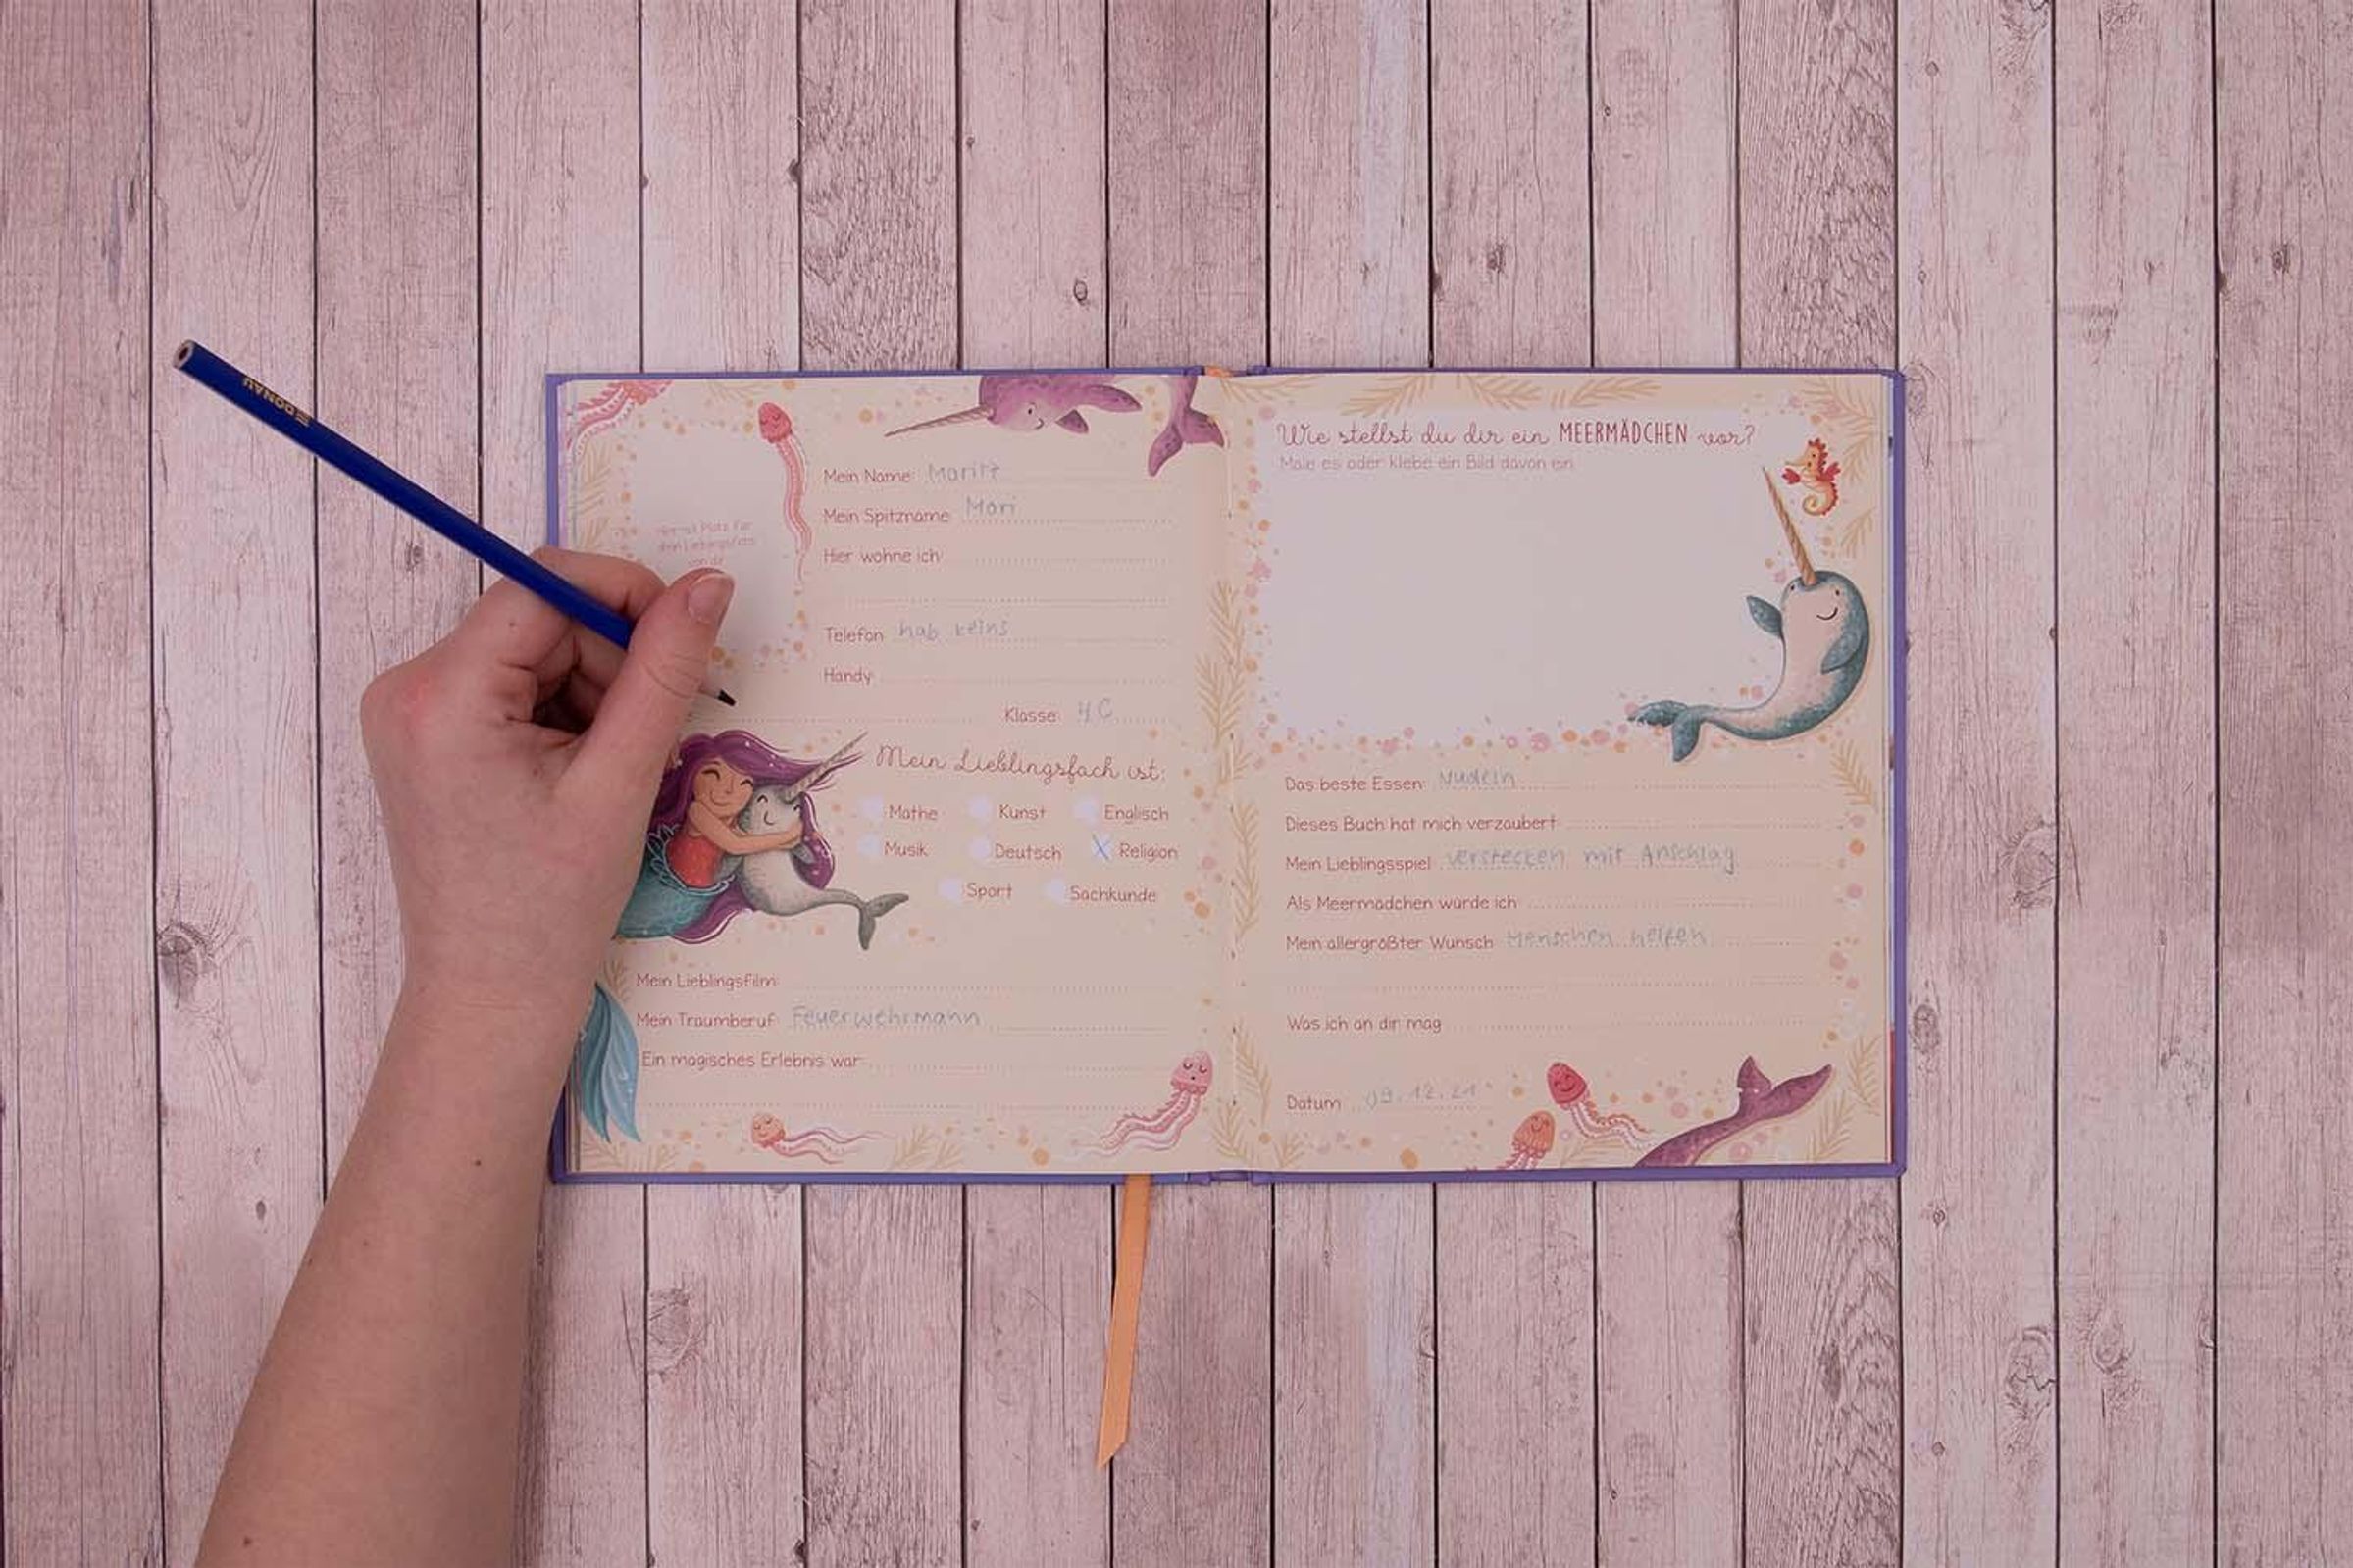 DONAU
Hier ist Platz für
dein Lieblingsfoto
von dir
Mein Name: Moritz
Mein Spitzname: Mori
Hier wohne ich:
Telefon: hab keins
Handy:
Klasse: 4C
Mein Lieblingsfach ist:
Mathe Kunst Englisch
Musik Deutsch X Religion
Sport Sachkunde
Mein Lieblingsfilm:
Mein Traumberuf: Feuerwehrmann
Ein magisches Erlebnis war:
Wie stellst du dir ein MEERMÄDCHEN vor?
Male es oder klebe ein Bild davon ein.
Das beste Essen: Nudeln
Dieses Buch hat mich verzaubert:
Mein Lieblingsspiel: verstecken mit Anschlag
Als Meermädchen würde ich:
Mein allergrößter Wunsch: Menschen helfen
Was ich an dir mag:
Datum: 09.12.21